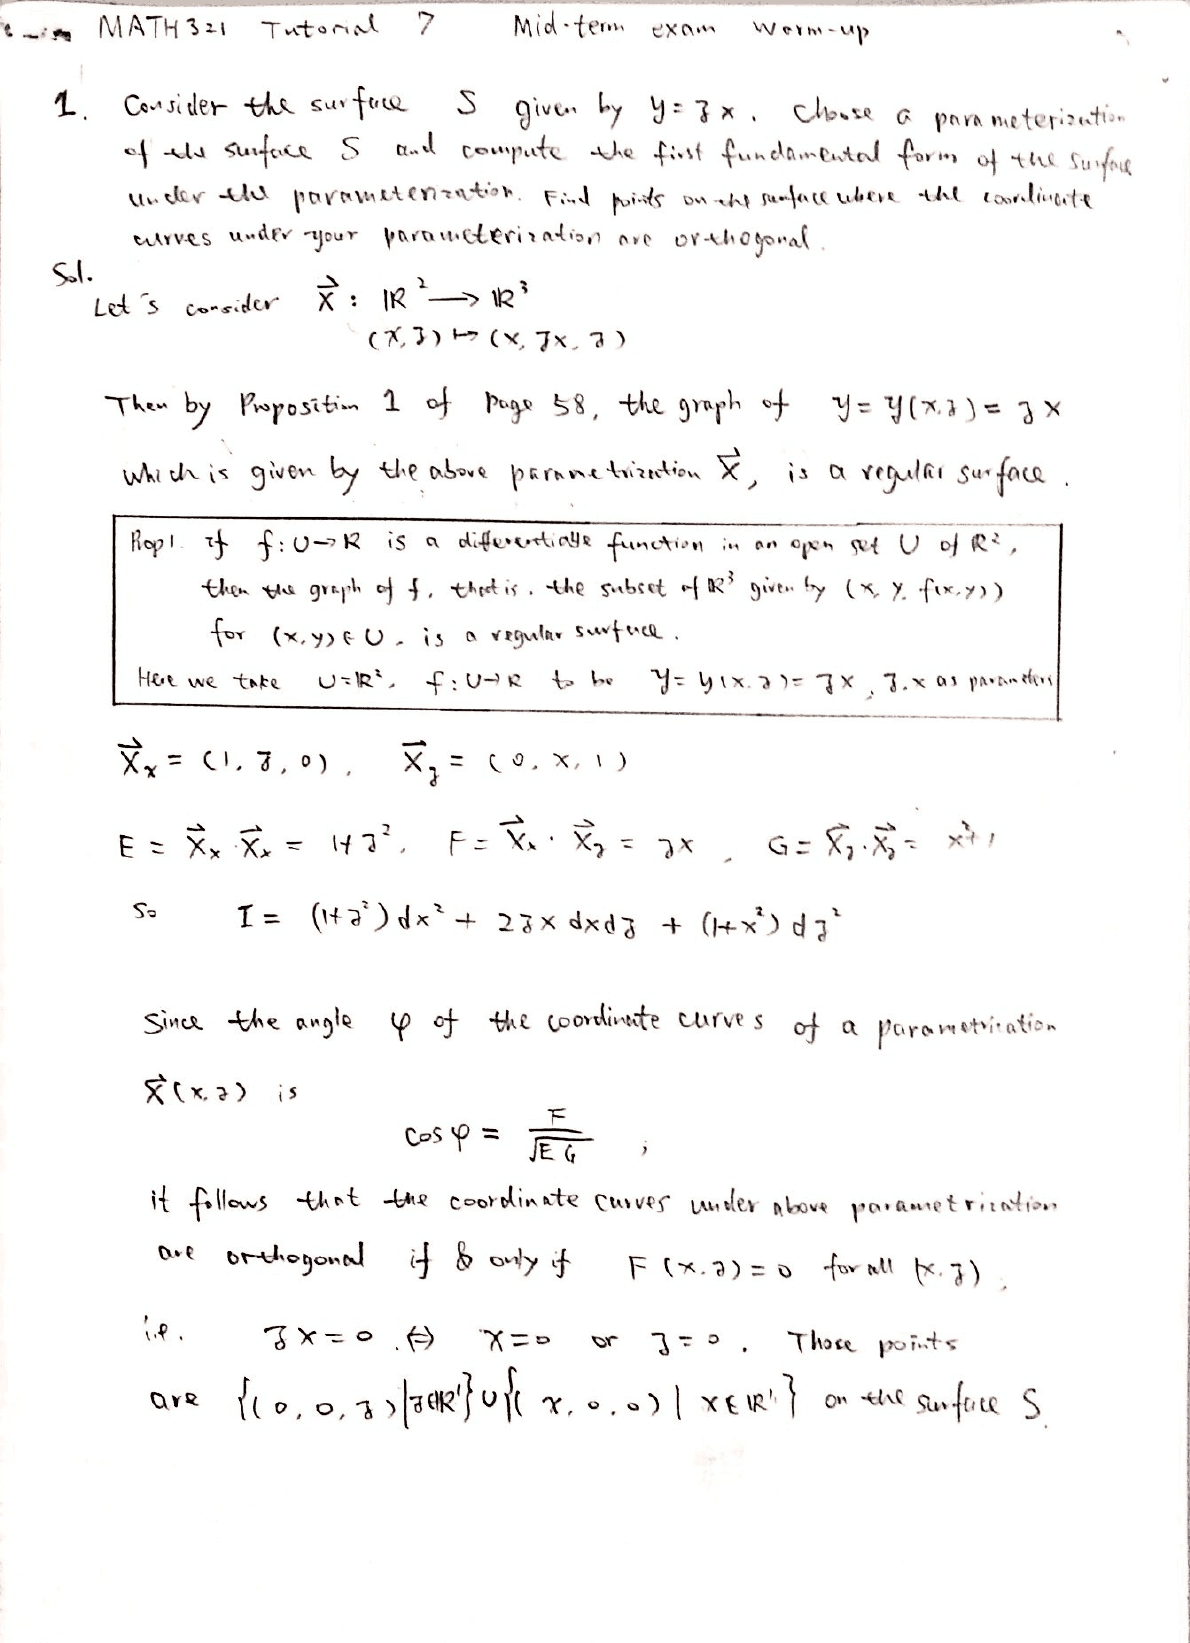 MATH321 Tutorial 7 Mid-term exam Worm-up
1. Consider the surface S given by y=zx. Choose a parameterization
of the surface S and compute the first fundamental form of the surface
under the parameterization. Find points on the surface where the coordinate
curves under your parameterization are orthogonal.
Sol.
Let's consider X⃗ : ℝ² ⟶ ℝ³
(x,z) ↦ (x, zx, z)
Then by Proposition 1 of Page 58, the graph of y=y(x,z)=zx
which is given by the above parametrization X⃗, is a regular surface.
Prop1. If f:U→R is a differentiable function in an open set U of R²,
then the graph of f, that is, the subset of ℝ³ given by (x, y, f(x,y))
for (x,y)∈U, is a regular surface.
Here we take U=ℝ², f:U→R to be y=y(x,z)=zx, z,x as parameters
X⃗ₓ = (1, z, 0), X⃗_z = (0, x, 1)
E = X⃗ₓ·X⃗ₓ = 1+z², F = X⃗ₓ·X⃗_z = zx, G = X⃗_z·X⃗_z = x²+1
So I = (1+z²)dx² + 2zx dxdz + (1+x²)dz²
Since the angle φ of the coordinate curves of a parametrization
X⃗(x,z) is
cosφ = F/√EG ;
it follows that the coordinate curves under above parametrization
are orthogonal if & only if F(x,z)=0 for all (x,z),
i.e. zx=0 ⇔ x=0 or z=0. Those points
are {(0,0,z)|z∈ℝ¹}∪{(x,0,0)|x∈ℝ¹} on the surface S.